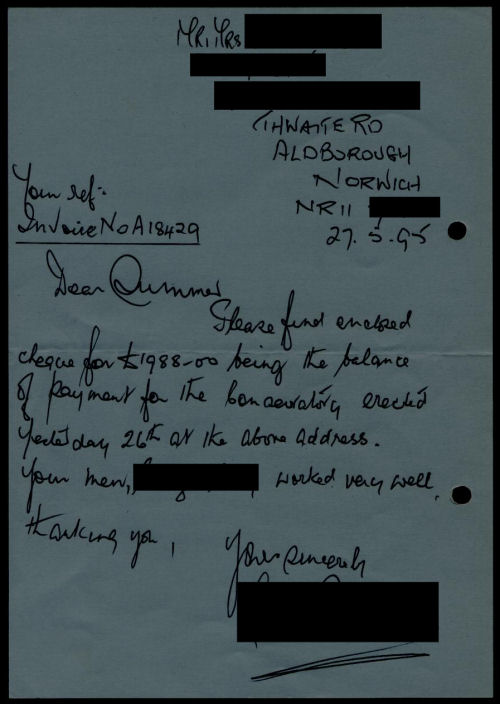 MR, MRS
THWAITE RD
ALDBOROUGH
NORWICH
NR11
27.5.95
Your ref:-
Invoice No A18429
Dear
Please find enclosed
cheque for £1988-00 being the balance
of payment for the Conservatory erected
yesterday 26th at the above address.
Your men, worked very well,
thanking you,
Yours sincerely